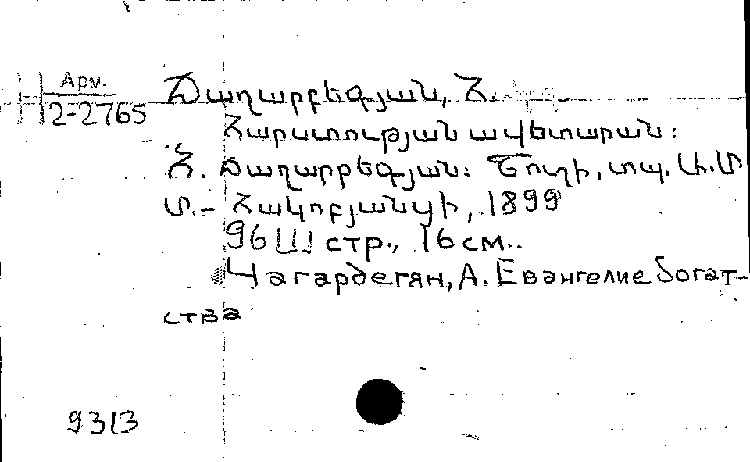 Арм.
2-2765
Ճաղարբեգյան, Հ.
Հարստության ավետարան:
Հ. Ճաղարբեգյան: Շուշի, տպ. Մ.Մ
Մ.- Հակոբյանցի, 1899
96 III стр., 16 см..
Чагарбегян, А. Евангелие богат-
ства
9313